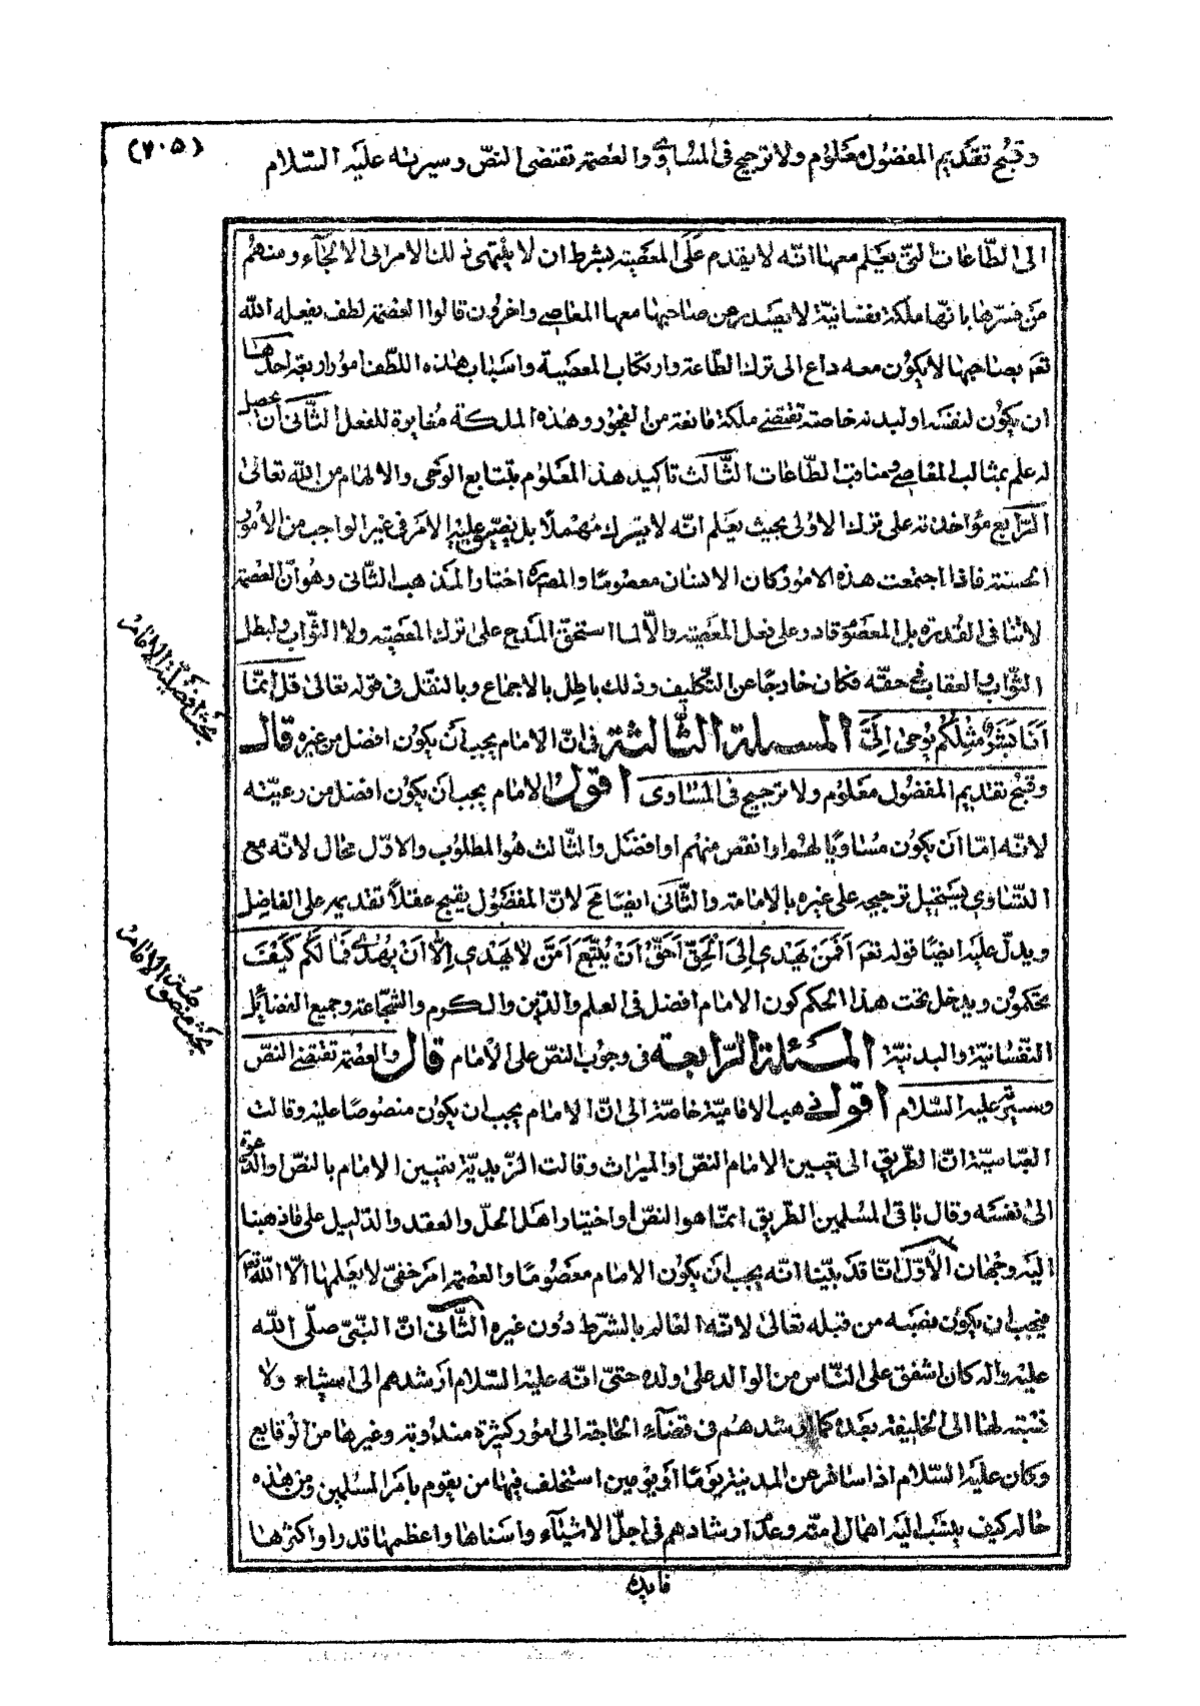 (٢٠٥)
وقبح تقديم المفضول معلوم ولا ترجيح فى المساوى والعصمة تقتضى النص وسيرته عليه السّلام
الى الطّاعات التى يعلم معها انّه لا يقدم على المعصية بشرط ان لا ينتهى ذلك الامر الى الالجآء ومنهم
من فسّرها بانّها ملكة نفسانيّة لا يصدر عن صاحبها معها المعاصى واخرون قالوا العصمة لطف يفعله الله
تعم بصاحبها لا يكون معه داع الى ترك الطّاعة وارتكاب المعصية واسباب هذه اللطف امور اربعة احدها
ان يكون لنفسه او لبدنه خاصة تقتضى ملكة مانعة من الفجور وهذه الملكة مغايرة للفعل الثّانى ان يحصل
له علم بمثالب المعاصى ومناقب الطّاعات الثّالث تاكيد هذا المعلوم بتتابع الوحى والالهام من الله تعالى
الرّابع مؤاخذته على ترك الاولى بحيث يعلم انّه لا يترك مهملًا بل يضيّق عليه الامر فى غير الواجب من الامور
الحسنة فاذا اجتمعت هذه الامور كان الانسان معصومًا والمصره اختار المذهب الثّانى وهو انّ العصمة
لا تنافى القدرة بل المعصوم قادر على فعل المعصية والّا لما استحق المدح على ترك المعصية ولا الثّواب ولبطل
الثّواب والعقاب فى حقّه فكان خارجًا عن التّكليف وذلك باطل بالاجماع وبالنقل فى قوله تعالى قل انّما
أنا بشر مثلكم يوحى الىّ المسئلة الثّالثة فى انّ الامام يجب أن يكون افضل من غيره قال
وقبح تقديم المفضول معلوم ولا ترجيح فى المساوى اقول الامام يجب ان يكون افضل من رعيّته
لانّه امّا أن يكون مساويًا لهم او انقص منهم او افضل والثّالث هو المطلوب والاوّل محال لانّه مع
التّساوى يستحيل ترجيحه على غيره بالامامة والثّانى ايضا مح لانّ المفضول يقبح عقلًا تقديمه على الفاضل
ويدلّ عليه ايضًا قوله تعم أفمن يهدى إلى الحقّ أحقّ أن يتّبع أمّن لا يهدى إلّا أن يهدى فما لكم كيف
تحكمون ويدخل تحت هذا الحكم كون الامام افضل فى العلم والدّين والكرم والشّجاعة وجميع الفضائل
النّفسانيّة والبدنيّة المسئلة الرّابعة فى وجوب النّص على الامام قال والعصمة تقتضى النّصّ
وسيرته عليه السّلام اقول ذهب الاماميّة خاصّة الى انّ الامام يجب ان يكون منصوصًا عليه وقالت
العبّاسيّة انّ الطّريق الى تعيين الامام النصّ او الميراث وقالت الزّيديّة تعيين الامام بالنصّ او الدّعوة
الى نفسه وقال باقى المسلمين الطّريق انّما هو النصّ او اختيار اهل الحلّ والعقد والدّليل على ما ذهبنا
اليه وجهان الأوّل انّا قد بيّنا انّه يجب أن يكون الامام معصومًا والعصمة امر خفىّ لا يعلمها الّا الله تعم
فيجب ان يكون نصبه من قبله تعالى لانّه العالم بالشّرط دون غيره الثّانى انّ النّبىّ صلّى الله
عليه وآله كان اشفق على النّاس من الوالد على ولده حتىّ انّه عليه السّلام أرشدهم الى اشياء ولا
نسبة لها الى الخليفة بعده كما ارشدهم فى قضآء الحاجة الى امور كثيرة مندوبة وغيرها من الوقايع
وكان عليه السّلام اذا سافر عن المدينة يومًا او يومين استخلف فيها من يقوم بامر المسلمين ومن هذه
حاله كيف ينسب اليه اهمال امّته وعدم ارشادهم فى اجلّ الاشيآء واسناها واعظمها قدرا واكثرها
فايدة
بحث افضليّة الامام
بحث منصوصيّة الامام